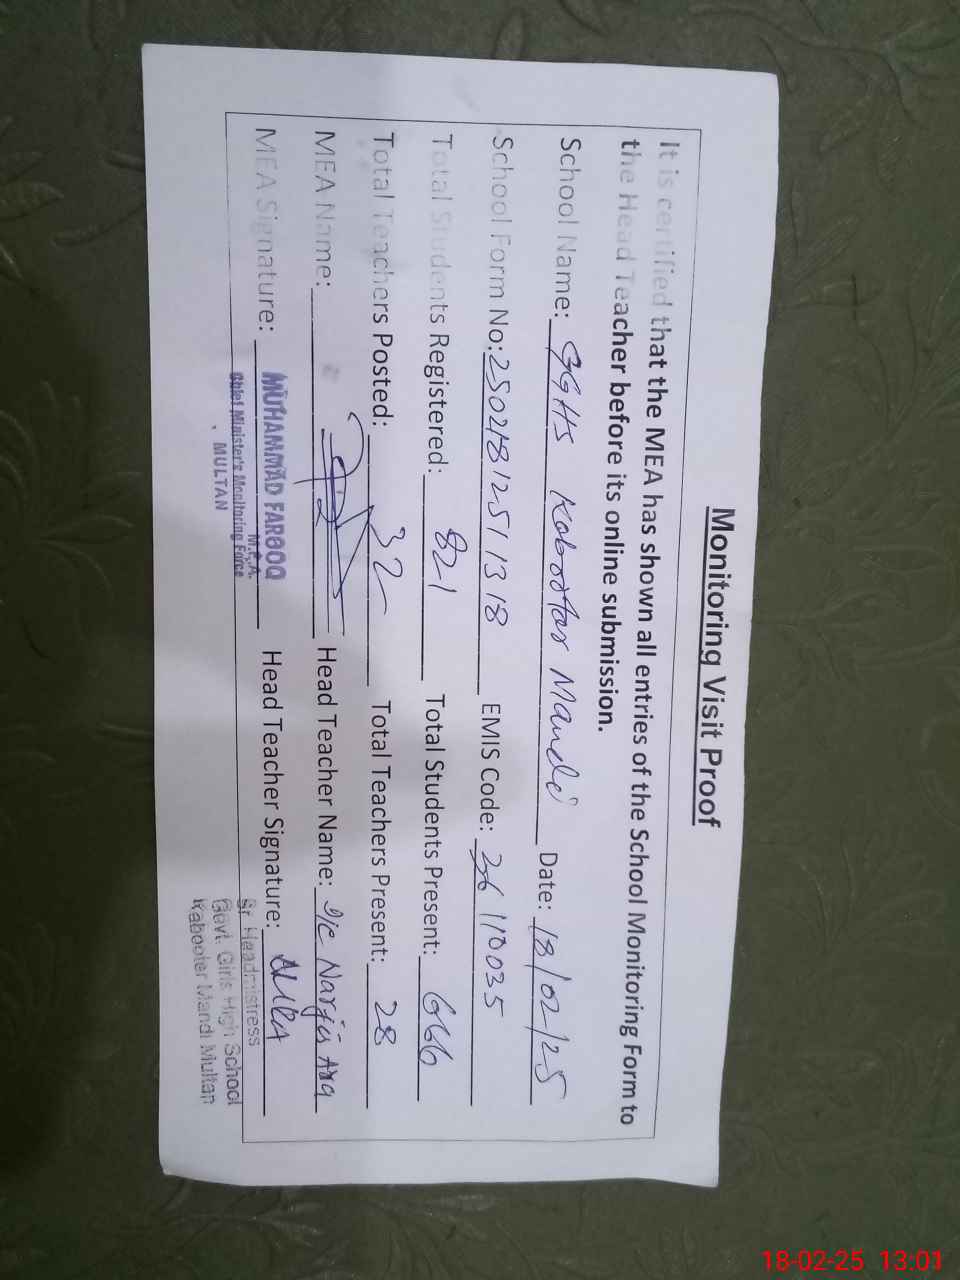 Monitoring Visit Proof
It is certified that the MEA has shown all entries of the School Monitoring Form to
the Head Teacher before its online submission.
School Name: GGHS Kabootar Mandi Date: 18/02/25
School Form No: 25021812511318 EMIS Code: 36110035
Total Students Registered: 821 Total Students Present: 666
Total Teachers Posted: 32 Total Teachers Present: 28
MEA Name: Head Teacher Name: I/c Narjis Ara
MEA Signature: Head Teacher Signature:
MUHAMMAD FAROOQ
M.E.A.
Chief Minister's Monitoring Force
MULTAN
Sr Headmistress
Govt. Girls High School
Kabooter Mandi Multan
18-02-25 13:01